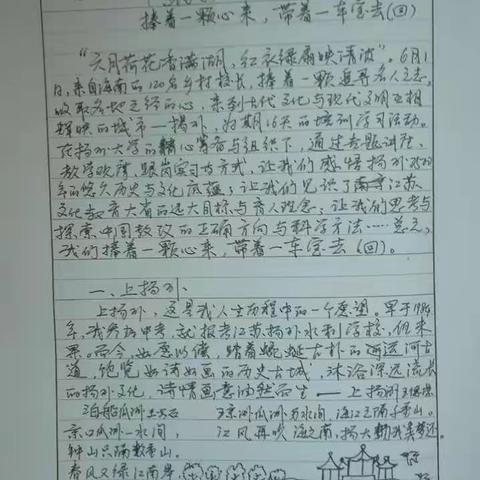 捧着一颗心来，带着一车宝去(回)
“六月荷花香满湖，红衣绿扇映清波”。6月1
日，来自海南的120名乡村校长，捧着一颗
收取各地之经的心，来到古代文化与现代文明互相
辉映的城市—扬州，为期16天的培训学习活动。
在扬州大学的精心筹备与组织下，通过专题讲座、
教学观摩、跟岗实习等方式，让我们感悟扬州
年的悠久历史与文化底蕴；让我们见识了江苏
文化教育大省的远大目标与育人理念；让我们思考与
探索中国教改的正确方向与科学方法……总之，
我们捧着一颗心来，带着一车宝去(回)。
一、上扬州
上扬州，这是我人生历程中的一个愿望。早于1984
年，我参加中考，就报考江苏扬州水利学校，但未
果。而今，如愿以偿，踏着蜿蜒古朴的运河古
道，饱览如诗如画的历史古城，沐浴深远流长
的扬州文化，诗情画意油然而生——上扬州
泊船瓜洲 京口瓜洲一水间，
京口瓜洲一水间， 江风再吹海之南，扬大
钟山只隔数重山。
春风又绿江南岸，